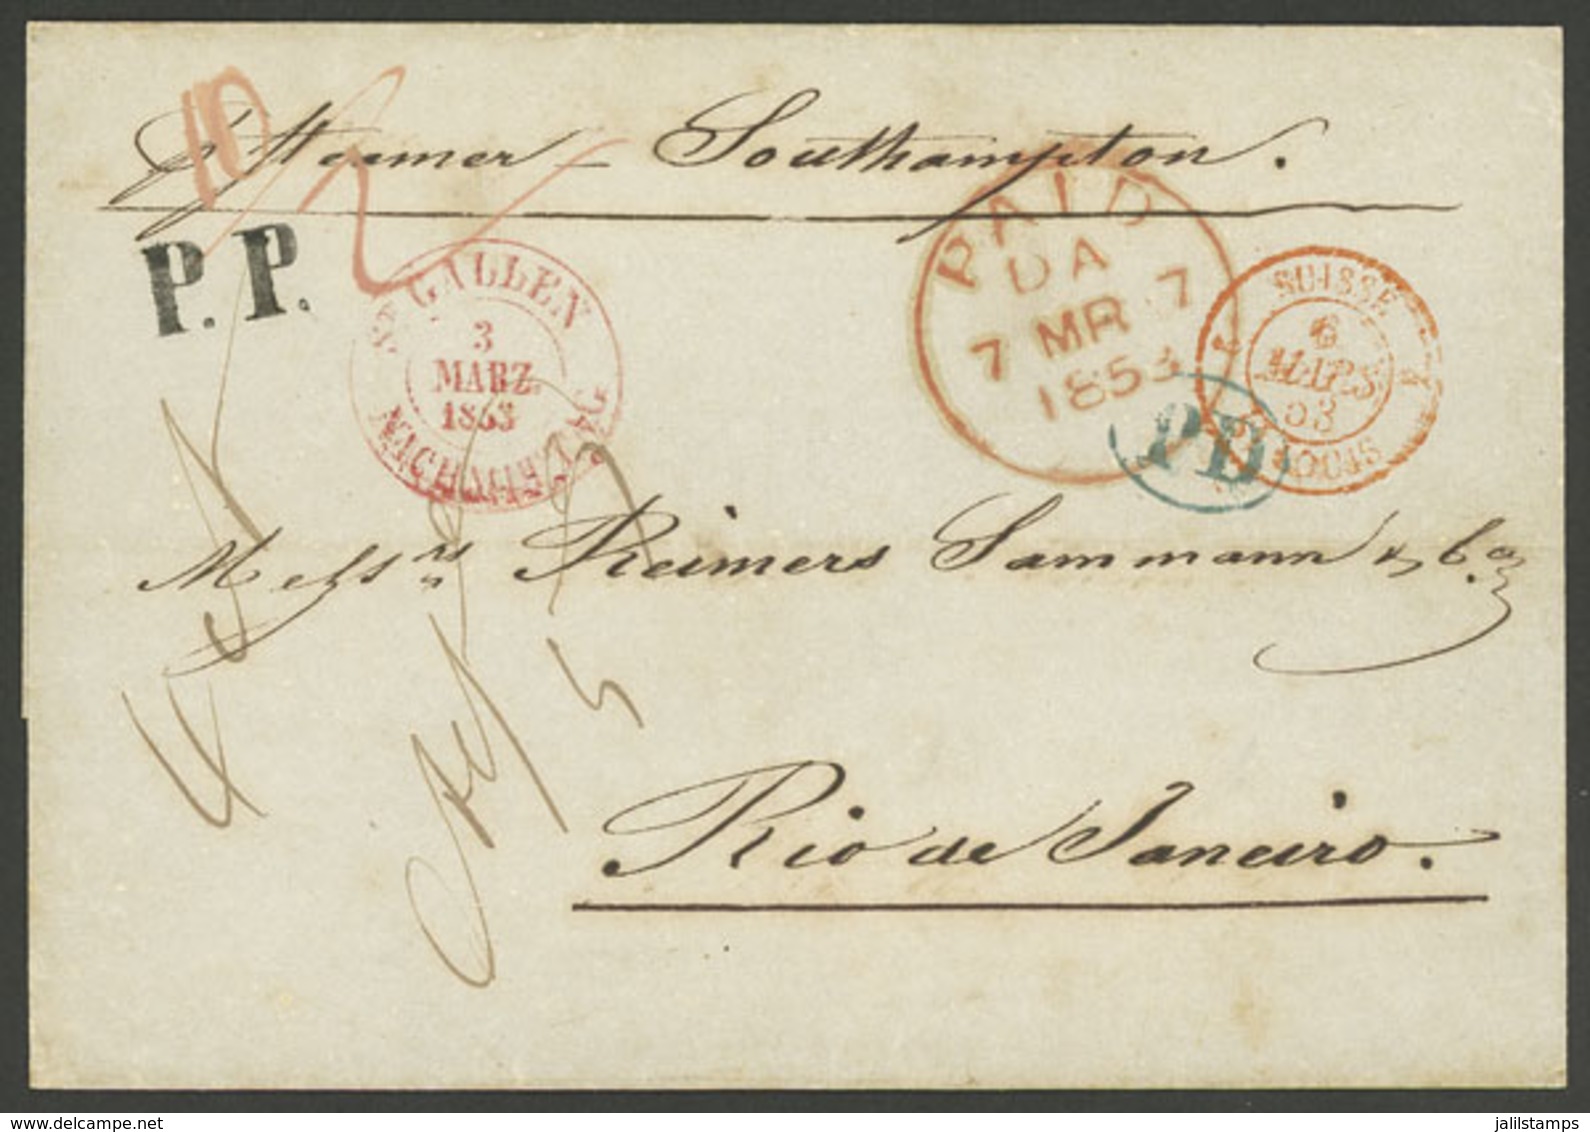 10
pr Steamer – Southampton.
P.P.
ST GALLEN
3
MÄRZ
1853
NACHMITTAG
PAID
DA
7 MR 7
1853
SUISSE
6
MARS
53
ST LOUIS
PD
Messrs Reimers Sammann & Co
Rio de Janeiro.
delcampe.net
jalilstamps